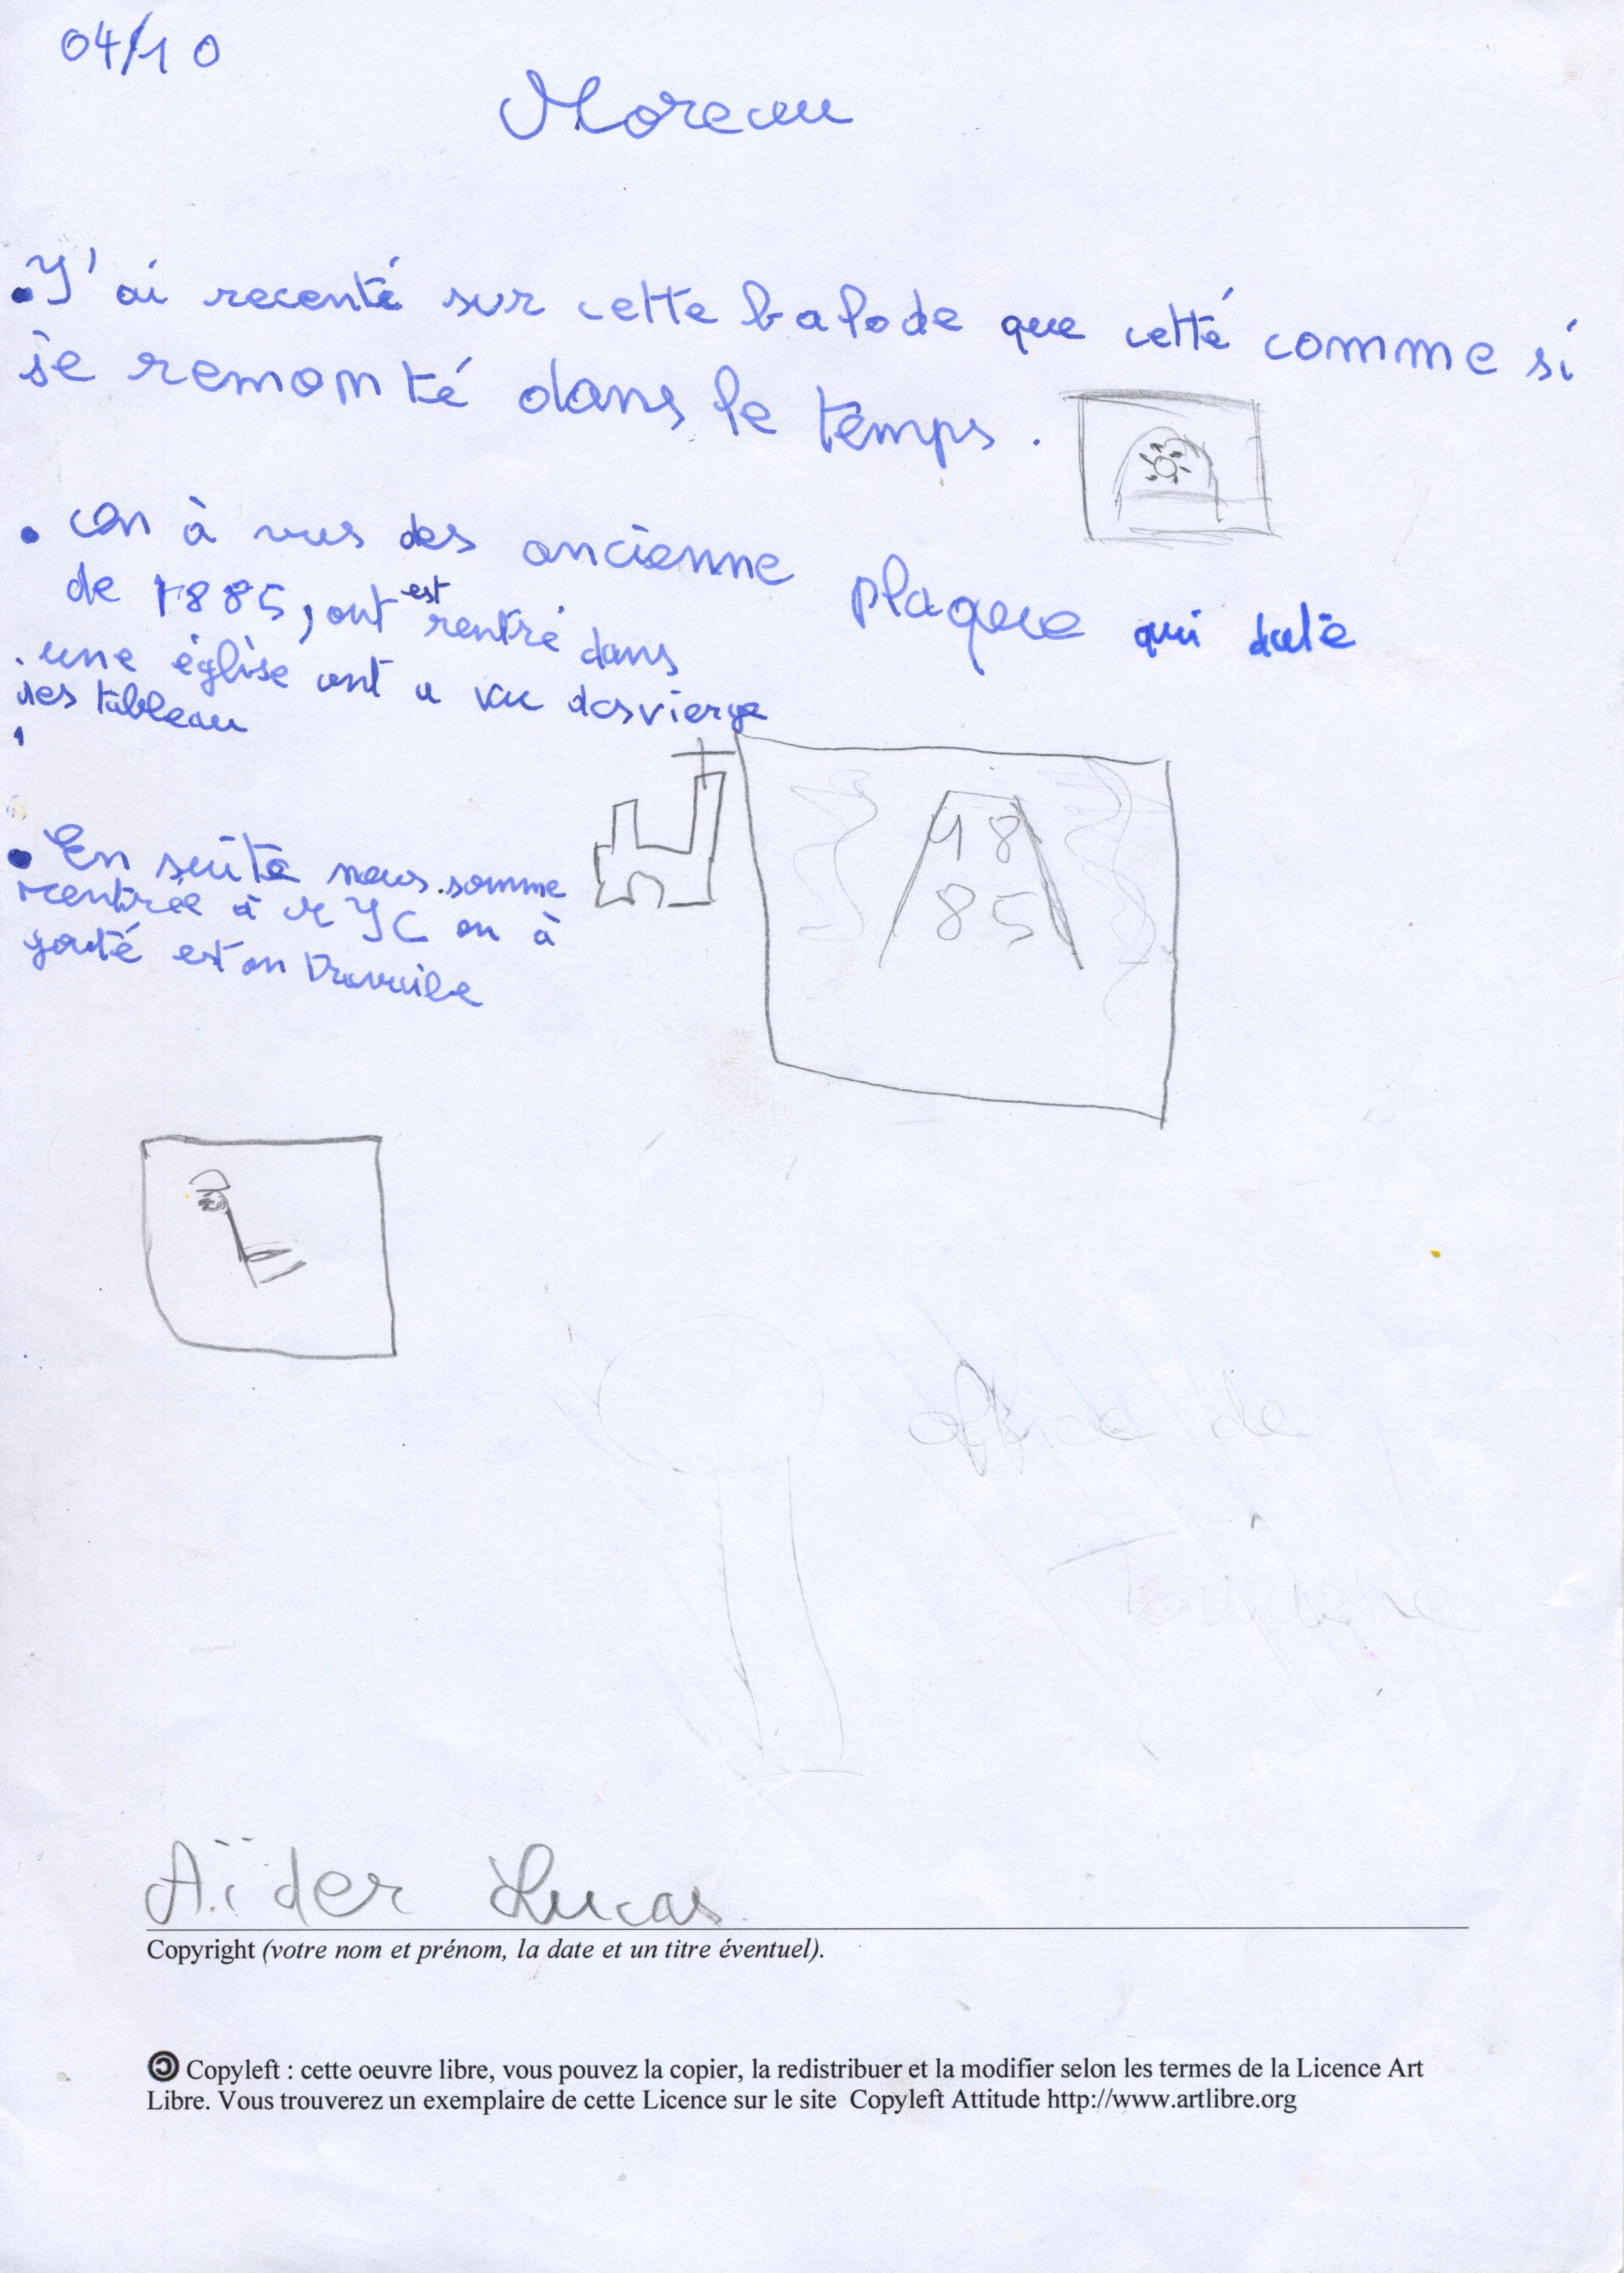 04/10
Moreau
• J'ai recenté sur cette balode que cetté comme si
je remonté dans le temps.
• on à vus des ancienne plaque qui date
de 1885, ont est rentré dans
une église ont a vu des vierge
des tableau
• En suite nous somme
rentrée à MJC on à
gouté est on travaile
18
85
office de
Aïder Lucas
Copyright (votre nom et prénom, la date et un titre éventuel).
Copyleft : cette oeuvre libre, vous pouvez la copier, la redistribuer et la modifier selon les termes de la Licence Art
Libre. Vous trouverez un exemplaire de cette Licence sur le site Copyleft Attitude http://www.artlibre.org